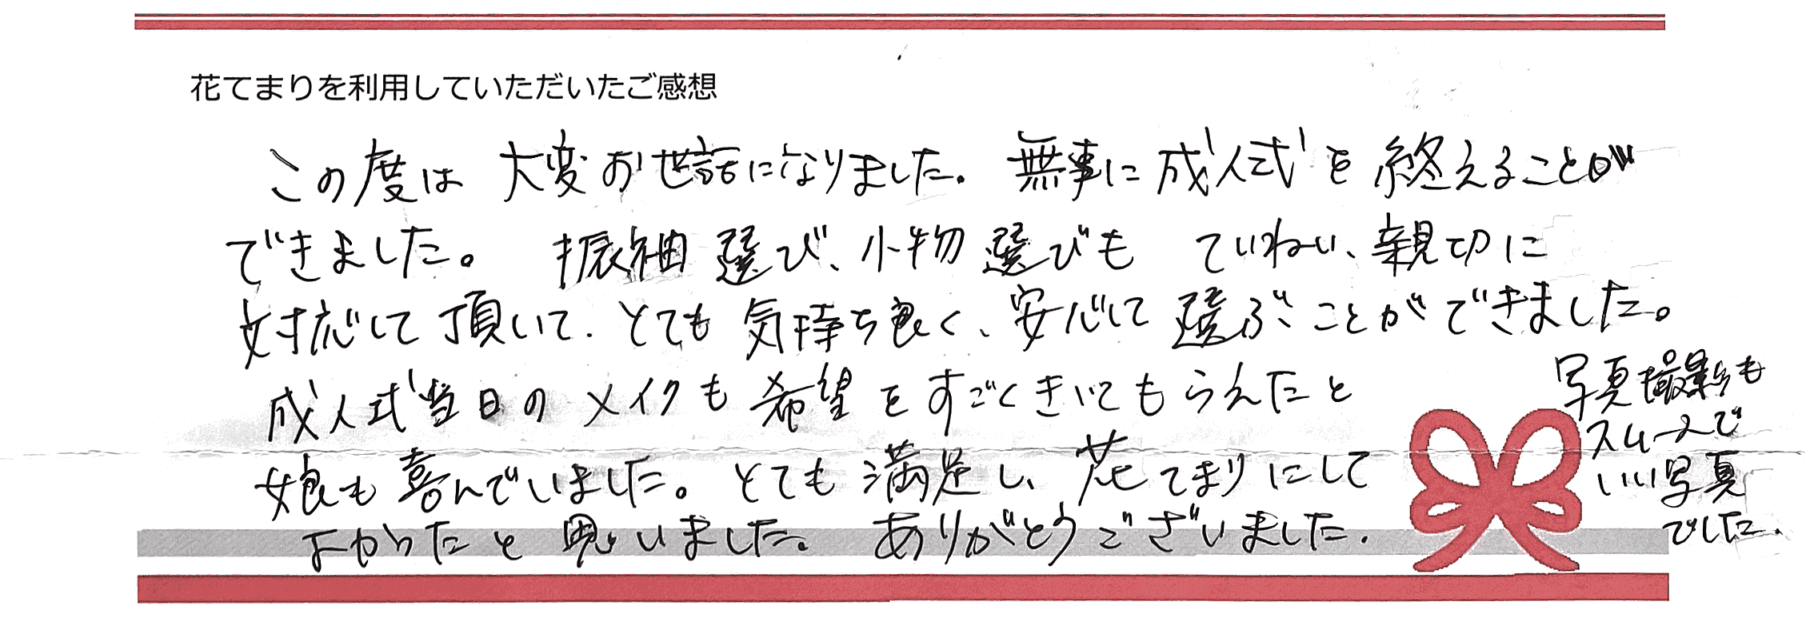 花てまりを利用していただいたご感想
この度は 大変お世話になりました。無事に成人式を終えることが
できました。 振袖選び、小物選びも ていねい、親切に
対応して頂いて、とても気持ち良く、安心して選ぶことができました。
成人式当日のメイクも希望をすごくきいてもらえたと
娘も喜んでいました。とても満足し、花てまりにして
よかったと思いました。ありがとうございました。
写真撮影も
スムーズで
いい写真
でした。